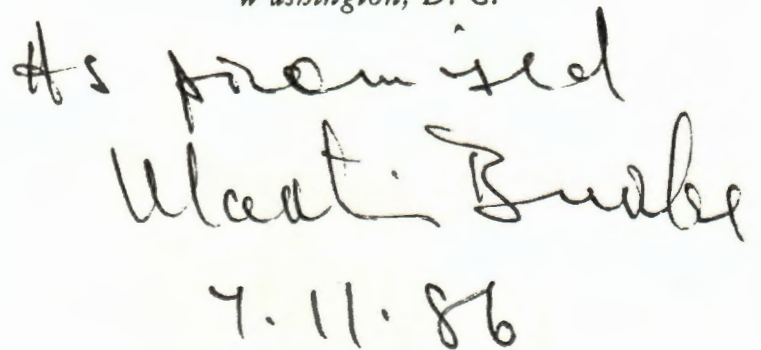 Washington, D. C.
As promised
Martin
7.11.86